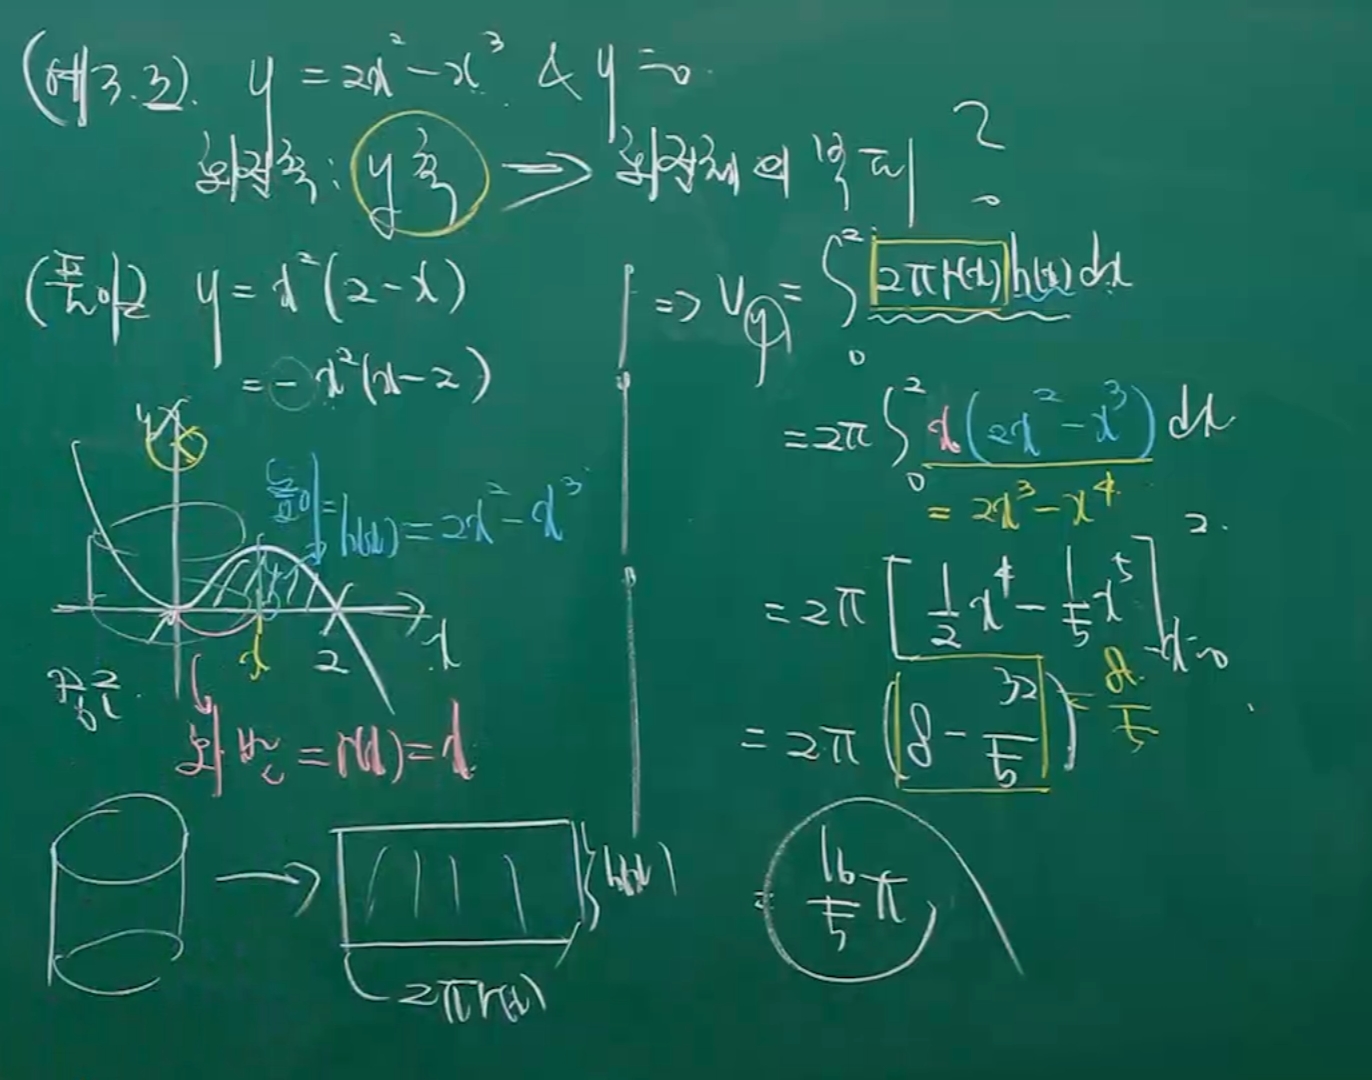 (예3.3). y = 2x² - x³ & y = 0.
회전축 : y축 ⇒ 회전체의 부피 ?
(풀이) y = x²(2-x)
= -x²(x-2)
y
높이 = h(x) = 2x² - x³
x
2
x
각각
반경 = r(x) = x
h(x)
2πr(x)
⇒ V_y = ∫₀² 2πr(x) h(x) dx
= 2π ∫₀² x(2x² - x³) dx
= 2x³ - x⁴
= 2π [ 1/2 x⁴ - 1/5 x⁵ ]²ₓ₌₀
= 2π (8 - 32/5) = 8/5
= 16/5 π